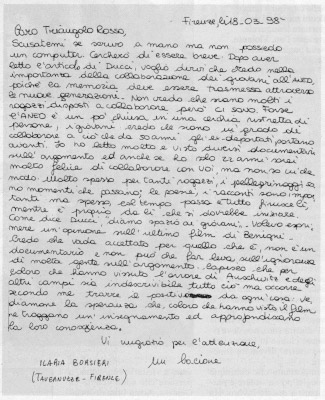 Firenze, lì 18.03.98
Caro Triangolo Rosso,
Scusatemi se scrivo a mano ma non possiedo
un computer. Cercherò di essere breve. Dopo aver
letto l'articolo di Ducci, voglio dirvi che credo nella
importanza della collaborazione dei giovani all'Aned,
poiché la memoria deve essere trasmessa attraverso
le nuove generazioni. Non credo che siano molti i
ragazzi disposti a collaborare però ci sono. Forse
l'ANED è un po' chiusa in una cerchia ristretta di
persone, i giovani credo che siano in grado di
collaborare a ciò che da 50 anni gli ex deportati portano
avanti. Io ho letto molto e visto diversi documentari
sull'argomento ed anche se ho solo 22 anni sarei
molto felice di collaborare con voi, ma non so
Molto spesso per tanti ragazzi, i pellegrinaggi
no momenti che passano; le poesie, i racconti sono
ma spesso col tempo passa e tutto finisce lì,
mentre è proprio da lì che si dovrebbe iniziare.
Come dice Ducci, "diamo spazio ai giovani". Volevo
mere un'opinione sull'ultimo film di Benigni.
Credo che vada accettato per quello che è, non è un
documentario e non può che far leva sull'ignoranza
di molta gente sull'argomento. Capisco che per
coloro che hanno vissuto l'orrore di Auschwitz e degli
altri campi sia indescrivibile tutto ciò ma occorre
secondo me trarre il positivo da ogni cosa:
diamone la speranza che, coloro che hanno visto il film
ne traggano un insegnamento ed approfondiscano
la loro conoscenza.
Vi ringrazio per l'attenzione,
Un bacione
ILARIA BORSIERI
(TAVARNUZZE - FIRENZE)